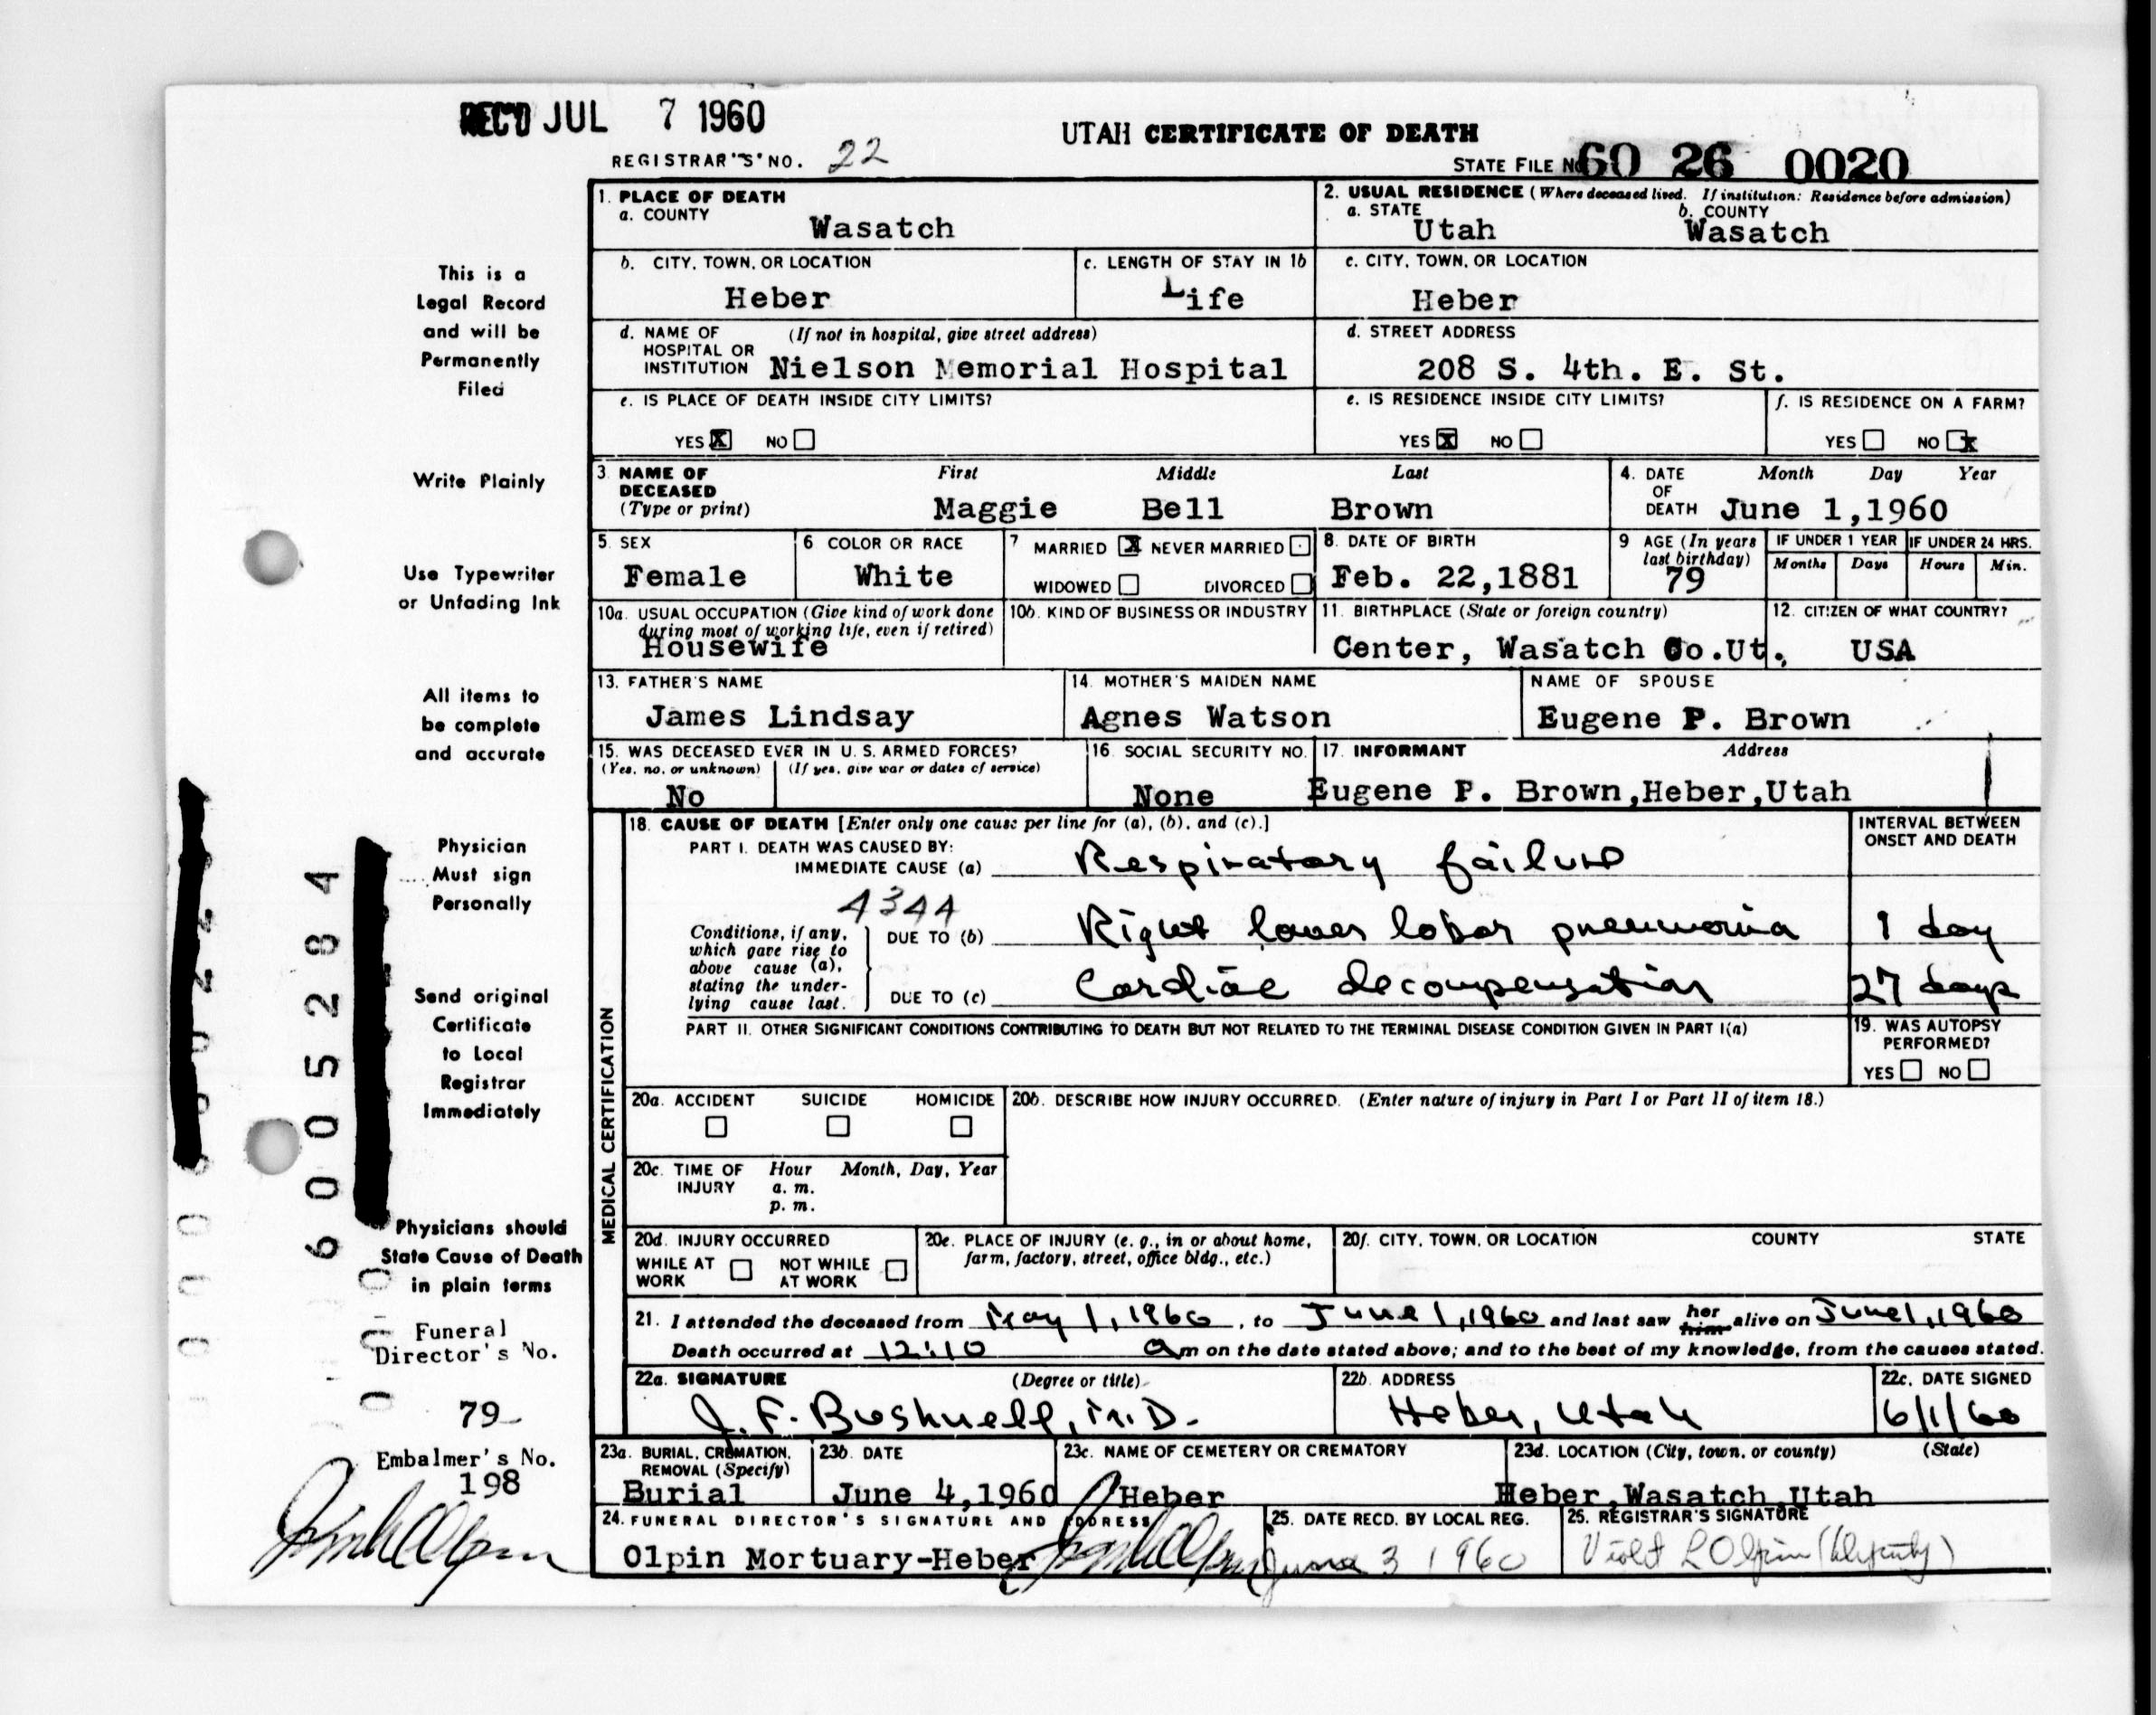 REC'D JUL 7 1960
UTAH CERTIFICATE OF DEATH
REGISTRAR'S NO. 22
STATE FILE No. 60 26 0020
1. PLACE OF DEATH
a. COUNTY
Wasatch
2. USUAL RESIDENCE (Where deceased lived. If institution: Residence before admission)
a. STATE b. COUNTY
Utah Wasatch
b. CITY, TOWN, OR LOCATION
Heber
c. LENGTH OF STAY IN 1b
Life
c. CITY, TOWN, OR LOCATION
Heber
d. NAME OF (If not in hospital, give street address)
HOSPITAL OR
INSTITUTION Nielson Memorial Hospital
d. STREET ADDRESS
208 S. 4th. E. St.
e. IS PLACE OF DEATH INSIDE CITY LIMITS?
YES X NO
e. IS RESIDENCE INSIDE CITY LIMITS?
YES X NO
f. IS RESIDENCE ON A FARM?
YES NO X
3. NAME OF DECEASED
(Type or print)
First Middle Last
Maggie Bell Brown
4. DATE OF DEATH
Month Day Year
June 1,1960
5. SEX
Female
6 COLOR OR RACE
White
7 MARRIED X NEVER MARRIED
WIDOWED DIVORCED
8. DATE OF BIRTH
Feb. 22,1881
9 AGE (In years last birthday)
79
IF UNDER 1 YEAR
Months Days
IF UNDER 24 HRS.
Hours Min.
10a. USUAL OCCUPATION (Give kind of work done
during most of working life, even if retired)
Housewife
10b. KIND OF BUSINESS OR INDUSTRY
11. BIRTHPLACE (State or foreign country)
Center, Wasatch Co.Ut.
12. CITIZEN OF WHAT COUNTRY?
USA
13. FATHER'S NAME
James Lindsay
14. MOTHER'S MAIDEN NAME
Agnes Watson
NAME OF SPOUSE
Eugene P. Brown
15. WAS DECEASED EVER IN U.S. ARMED FORCES?
(Yes, no, or unknown) (If yes, give war or dates of service)
No
16. SOCIAL SECURITY NO.
None
17. INFORMANT Address
Eugene P. Brown,Heber,Utah
MEDICAL CERTIFICATION
18. CAUSE OF DEATH [Enter only one cause per line for (a), (b), and (c).]
INTERVAL BETWEEN
ONSET AND DEATH
PART I. DEATH WAS CAUSED BY:
IMMEDIATE CAUSE (a) Respiratory failure
4344
Conditions, if any,
which gave rise to
above cause (a),
stating the under-
lying cause last.
DUE TO (b) Right lower lobar pneumonia 1 day
DUE TO (c) Cardiac decompensation 27 days
PART II. OTHER SIGNIFICANT CONDITIONS CONTRIBUTING TO DEATH BUT NOT RELATED TO THE TERMINAL DISEASE CONDITION GIVEN IN PART I(a)
19. WAS AUTOPSY
PERFORMED?
YES NO
20a. ACCIDENT SUICIDE HOMICIDE
20b. DESCRIBE HOW INJURY OCCURRED. (Enter nature of injury in Part I or Part II of item 18.)
20c. TIME OF INJURY Hour Month, Day, Year
a. m.
p. m.
20d. INJURY OCCURRED
WHILE AT WORK NOT WHILE AT WORK
20e. PLACE OF INJURY (e. g., in or about home,
farm, factory, street, office bldg., etc.)
20f. CITY, TOWN, OR LOCATION COUNTY STATE
21. I attended the deceased from May 1, 1960, to June 1, 1960 and last saw her him alive on June 1, 1960
Death occurred at 12:10 a m on the date stated above; and to the best of my knowledge, from the causes stated.
22a. SIGNATURE (Degree or title)
J. F. Bushnell, M.D.
22b. ADDRESS
Heber, Utah
22c. DATE SIGNED
6/1/60
23a. BURIAL, CREMATION,
REMOVAL (Specify)
Burial
23b. DATE
June 4,1960
23c. NAME OF CEMETERY OR CREMATORY
Heber
23d. LOCATION (City, town, or county) (State)
Heber,Wasatch,Utah
24. FUNERAL DIRECTOR'S SIGNATURE AND ADDRESS
Olpin Mortuary-Heber
25. DATE RECD. BY LOCAL REG.
June 3 1960
25. REGISTRAR'S SIGNATURE
Violt L Olpin (Deputy)
This is a
Legal Record
and will be
Permanently
Filed
Write Plainly
Use Typewriter
or Unfading Ink
All items to
be complete
and accurate
Physician
Must sign
Personally
Send original
Certificate
to Local
Registrar
Immediately
Physicians should
State Cause of Death
in plain terms
Funeral
Director's No.
79
Embalmer's No.
198
6005284